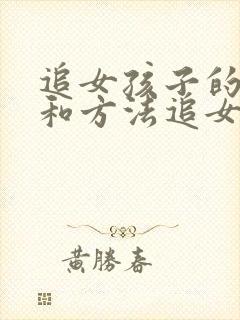 追女孩子的
和方法追女
黄勝春